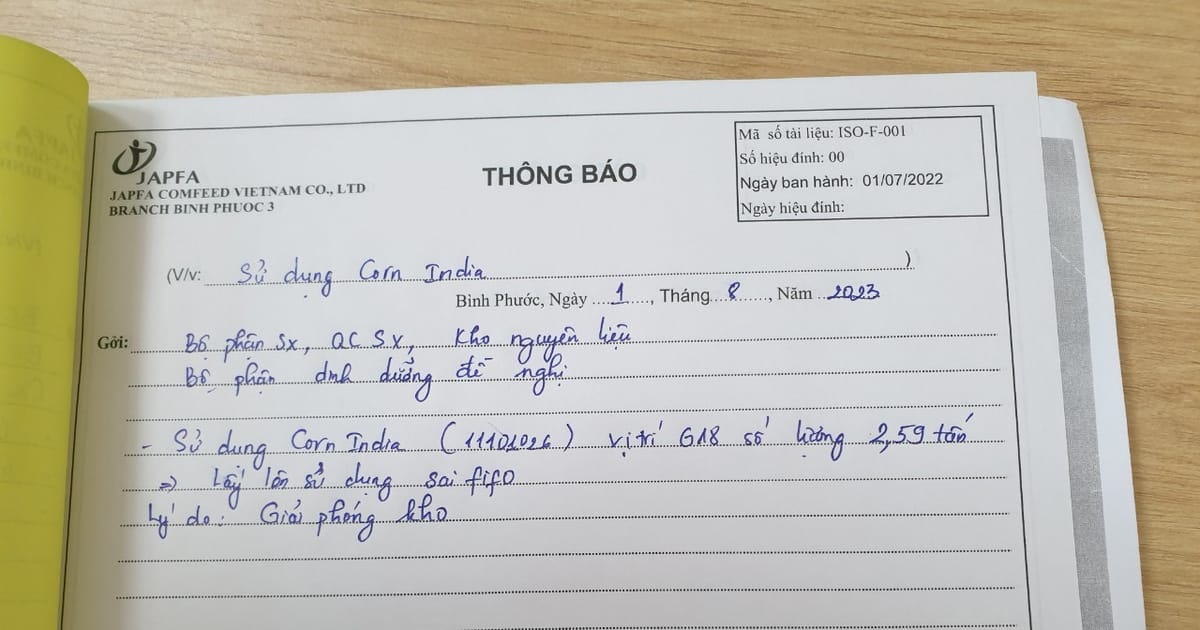 JAPFA
JAPFA COMFEED VIETNAM CO., LTD
BRANCH BINH PHUOC 3
THÔNG BÁO
Mã số tài liệu: ISO-F-001
Số hiệu đính: 00
Ngày ban hành: 01/07/2022
Ngày hiệu đính:
(V/v: Sử dụng Corn India )
Bình Phước, Ngày 1, Tháng 8, Năm 2023
Gởi: Bộ phận Sx, QC Sx, Kho nguyên liệu
Bộ phận dinh dưỡng đề nghị
- Sử dụng Corn India (11101026) vị trí G18 số lượng 2,59 tấn
=> Lấy lên sử dụng sai fifo
Lý do: Giải phóng kho